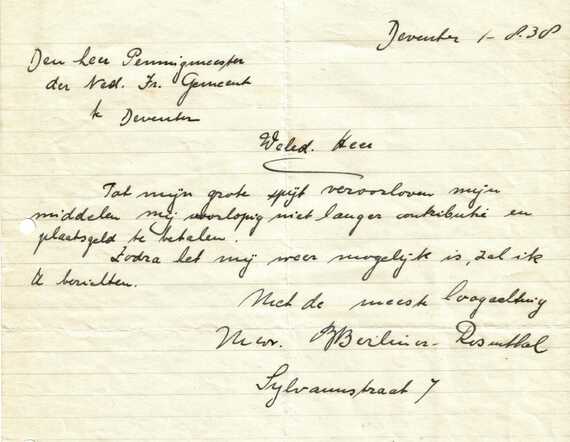 Deventer 1-8.38
Den heer Penningmeester
der Ned. Isr. Gemeent
te Deventer
Weled. Heer
Tot mijn grote spijt veroorloven mijn
middelen mij voorlopig niet langer contributie en
plaatsgeld te betalen.
Zodra het mij weer mogelijk is, zal ik
U berichten.
Met de meeste hoogachting
Mevr. Berliner-Rosenthal
Sylvanusstraat 7